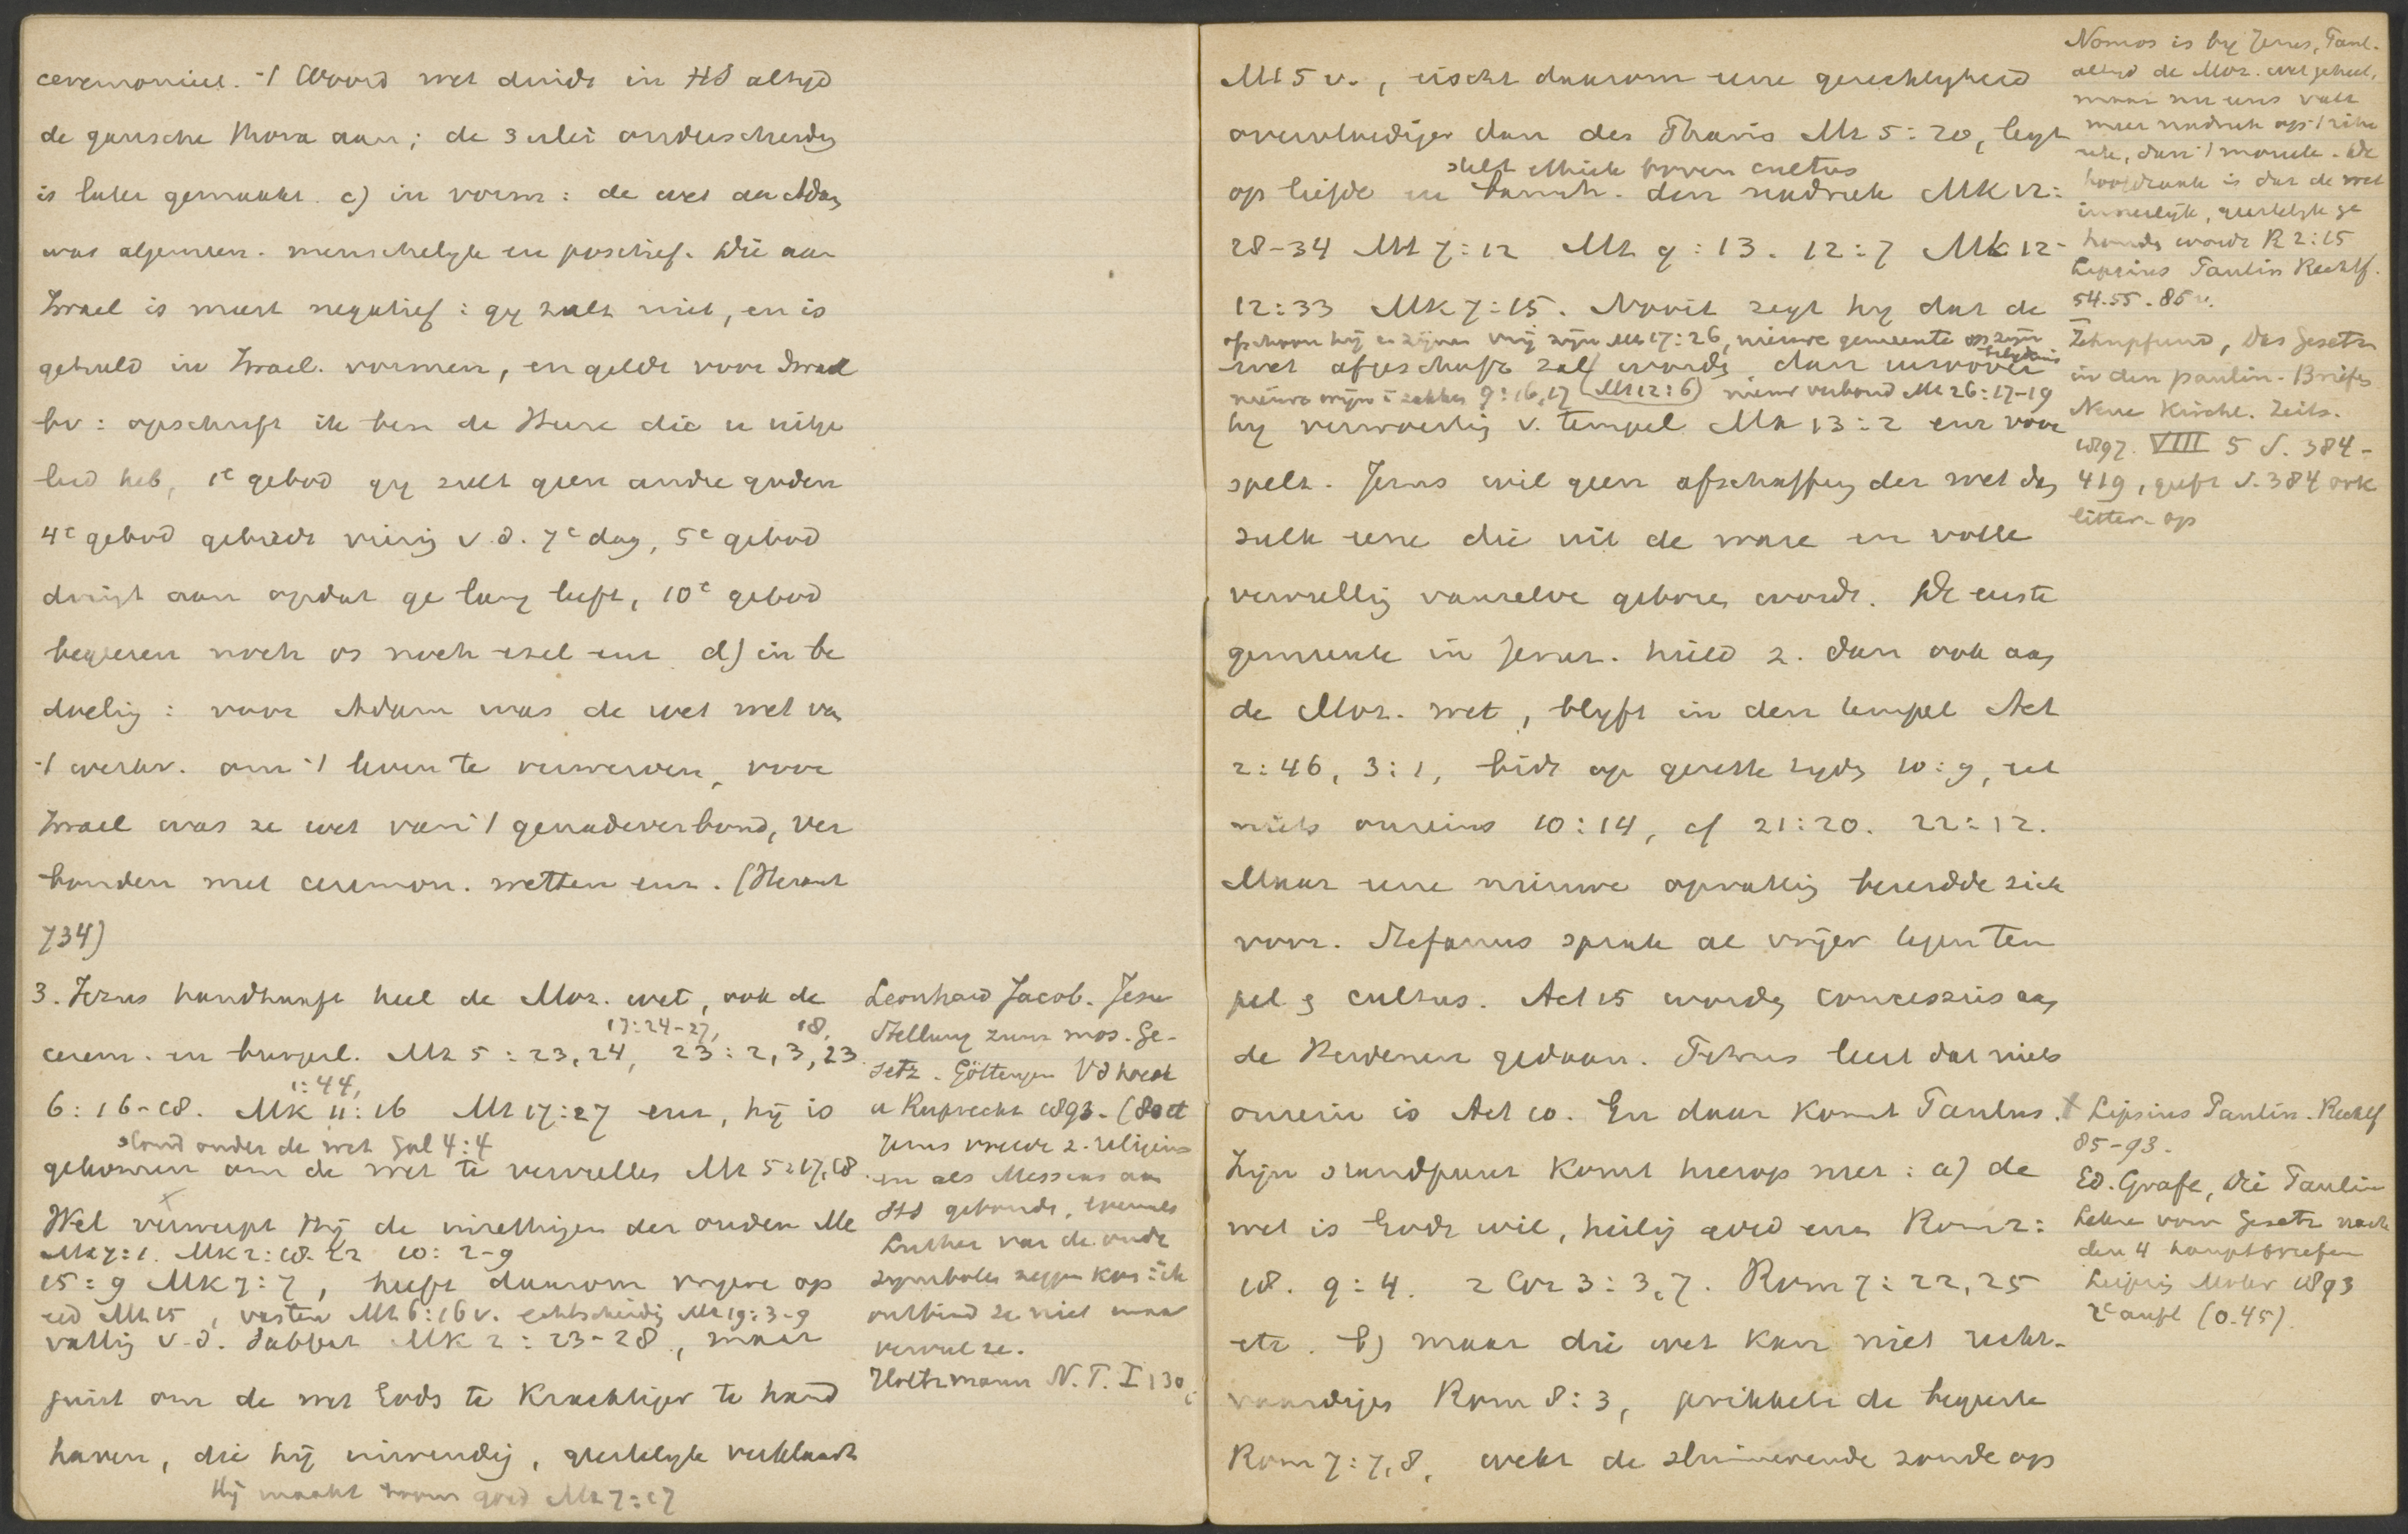 ceremonieel. 't Woord wet duidt in HS altijd
de gansche Thora aan; de 3 erlei onderscheidg
is later gemaakt. c) in vorm: de wet aan Adam
was algemeen. menschelijk en positief. Die aan
Israel is meest negatief: gij zult niet, en is
gehuld in Israel. vormen, en geldt voor Israel
bv: opschrift ik ben de Heere die u uitge
leid heb, 1e gebod gij zult geen andre goden
4e gebod gebiedt viering v.d. 7e dag, 5e gebod
dringt aan opdat ge lang leeft, 10e gebod
begeeren noch os noch ezel enz d) in be
doelig: voor Adam was de wet wet van
't werkv. om 't leven te verwerven, voor
Israel was ze wet van 't genadeverbond, ver
bonden met ceremon. wetten enz. (Heraut
734)
3. Jezus handhaaft heel de Moz. wet, ook de
17:24-27, 18,
cerem. en burgerl. Mt 5:23,24, 23:2,3,23
1:44,
6:16-18. Mk 11:16 Mt 17:27 enz, hij is
stond onder de wet Gal 4:4
gekomen om de wet te vervullen Mt 5:17,18.
Wel verwerpt Hij de inzettingen der ouden Mt
Mk 7:1. Mk 2:18-22 10:2-9
15:9 Mk 7:7, heeft daarom vrijere op
eed Mt 15, vasten Mt 6:16v. echtscheidig Mt 19:3-9
vattig v.d. Sabbat Mk 2:23-28, maar
juist om de wet Gods te krachtiger te hand
haven, die hij inwendig, geestelijk verklaart
Hij maakt boom goed Mt 7:17
Leonhard Jacob. Jesu
Stellung zum mos. Ge-
setz. Göttingen Vdhoeck
u Ruprecht 1893. (Doet
Jezus vrede z. religieus
en als Messias aan
HS gebonde, evenals
Luther van de oude
symbolen zeggen kon: ik
ontbind ze niet maar
vervul ze.
Holtzmann N.T. I 130
Mt 5 v., eischt daarom eene gerechtigheid
overvloediger dan des Phariz Mt 5:20, legt
stelt ethiek boven cultus
op liefde en barmh. den nadruk Mk 12:
28-34 Mt 7:12 Mt 9:13. 12:7 Mk 12-
12:33 Mk 7:15. Nooit zegt hij dat de
ofschoon hij en zijnen vrij zijn Mt 17:26, nieuwe gemeente op zijn
belijdenis
wet afgeschaft zal worden, dan
nieuwe wijn i zakken 9:16,17 (Mt 12:6) nieuw verbond Mt 26:17-19
hij verwoestig v. tempel Mk 13:2 enz voor
spelt. Jezus wil geen afschaffing der wet dan
zulk eene die uit de ware en volle
vervullig vanzelve geboren wordt. De eerste
gemeente in Jeruz. hield z. dan ook aan
de Moz. wet, blijft in den tempel Act
2:46, 3:1, bidt op gezette tijden 10:9, eet
niets onreins 10:14, cf 21:20. 22:12.
Maar eene nieuwe opvattig bereidde zich
voor. Stefanus sprak al vrijer tegen tem
pel & cultus. Act 15 worden concessies aan
de Heidenen gedaan. Petrus leert dat niets
onrein is Act 10. En daar komt Paulus.
Zijn standpunt komt hierop neer: a) de
wet is Gods wil, heilig goed enz Rom 2:
18. 9:4. 2 Cor 3:3,7. Rom 7:22,25
etc. b) maar die wet kan niet recht-
vaardigen Rom 8:3, prikkelt de begeerte
Rom 7:7,8, wekt de sluimerende zonde op
Nomos is bij Jezus, Paul.
altijd de Moz. wet geheel,
maar nu eens valt
meer nadruk op 't ritu
eele, dan 't moreele. De
hoofdzaak is dat de wet
innerlijk, geestelijk ge
houden wordt R 2:15
Lipsius Paulin Rechtf.
54.55.85 v.
Zehnpfund, das Gesetz
in den paulin. Briefen
Neue Kirchl. Zeits.
1897. VIII 5 S. 384-
419, geeft S. 384 ook
litter. op
† Lipsius Paulin. Rechtf
85-93.
Ed. Grafe, Die Paulin
Lehre vom Gesetz nach
den 4 Hauptbriefen
Leipzig Mohr 1893
2e aufl (0.45).